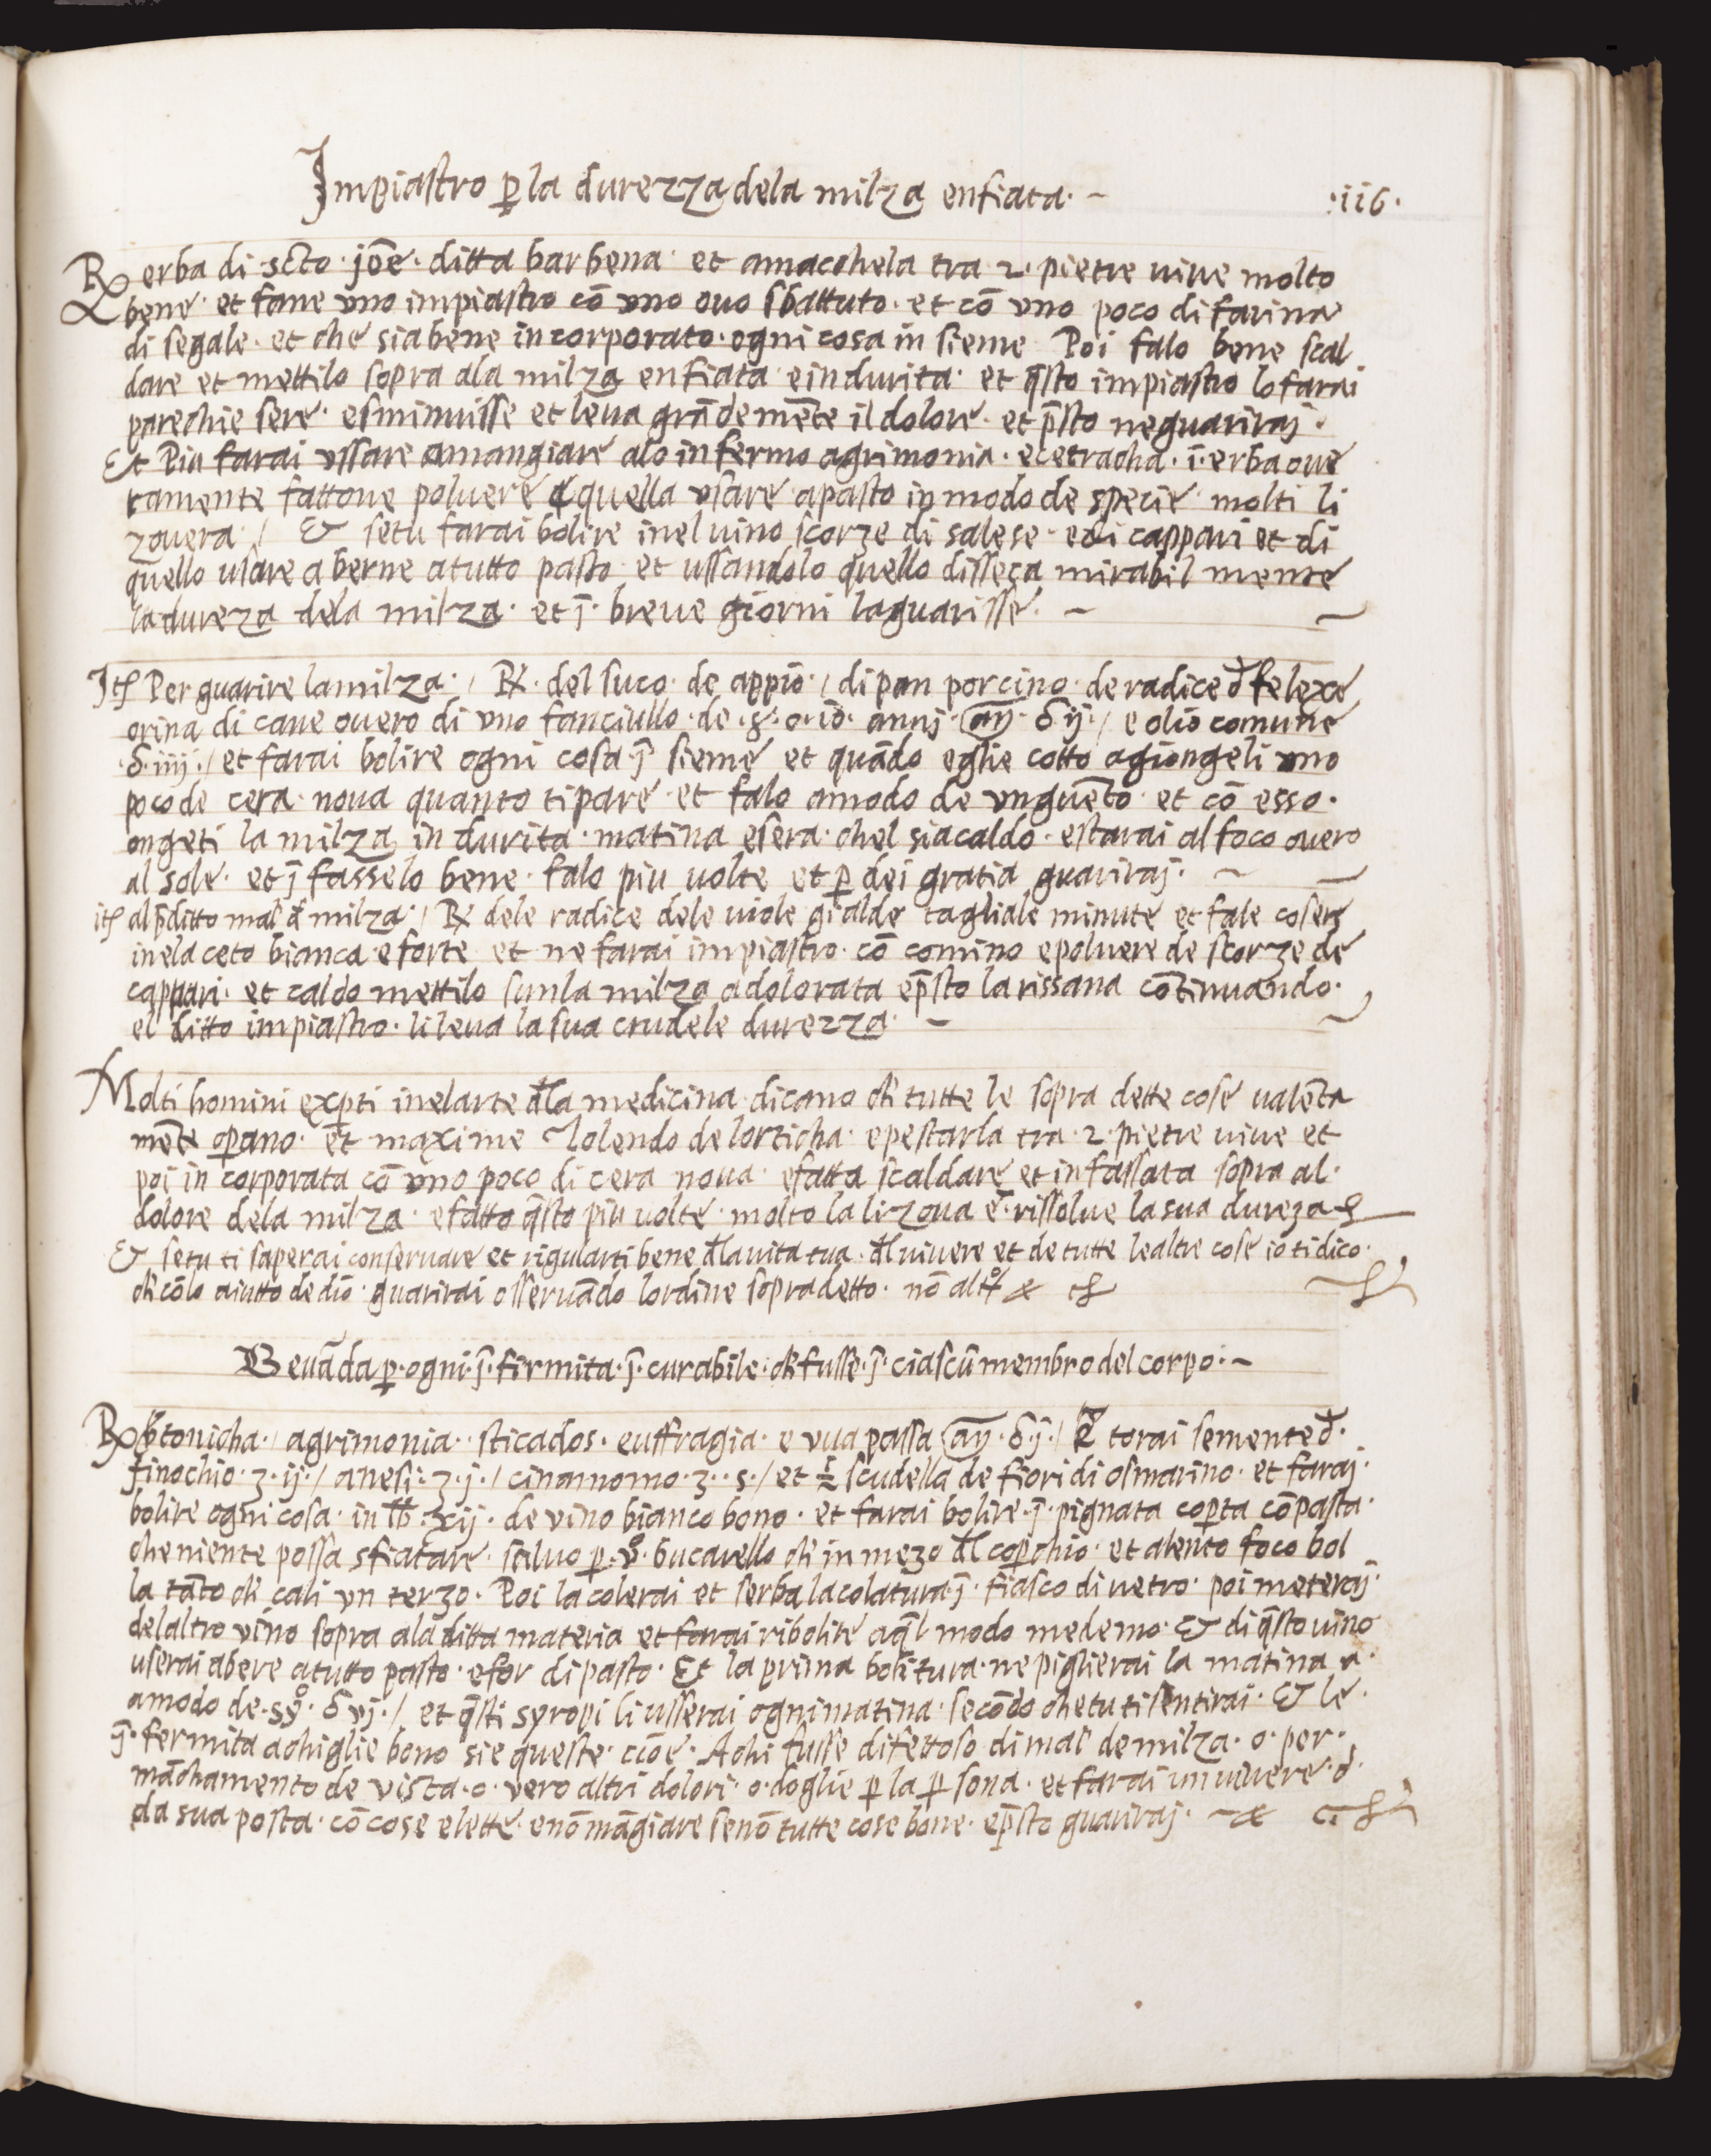 Impiastro p̱ la durezza dela milza enfiata· ~
·116·
℞ erba di sc̄to · joēe · ditta barbena · et amacchela tra · 2 · pietre uiue molto
bene · et fane vno impiastro cō vno ouo sbattuto · et cō vno poco di farina
di segale · et che sia bene incorporato · ogni cosa in sieme Poi falo bene scal
dare et mettilo sopra ala milza enfiata e indurita · et q̄sto impiastro lo farai
parechie sere · esminuisse et leua grādemēte il dolore · et p̄sto neguariraj ·
Et Piu farai vssare amangiare alo infermo agrimonia · e cetracha · ī · erba oue
ramente fattone poluere e quella vsare apasto in modo de specie molti li
zouera / & setu farai bolire inel uino scorze di salese · e di cappari et di
quello usare a berne atutto pasto · et ussandolo quello disseca mirabil mente
la dureza dela milza · et j̄ · breue giorni laguarisse · ~
Itē Per guarire lamilza · / ℞ · del suco · de appio · / di pan porcino · de radice d̄ felexe
orina di cane ouero di vno fanciullo · de · 8 · o · 10 · annj · an̄ · ʒ ij · / e olio comune
· ʒ · iiij · / et farai bolire ogni cosa j̄ sieme et quādo eglie cotto agiongeli vno
poco de cera · noua quanto ti pare · et falo amodo de vnguēto · et cō esso ·
ongeti la milza in durita · matina esera · chel sia caldo · estarai al foco ouero
al sole · et j̄ fasselo bene · falo piu uolte et p̱ dei gratia guariraj · ~
itē al p̄ditto mal d̄ milza · / ℞ dele radice dele uiole gialde tagliale minute et fale cosere
inelaceto bianca e forte et ne farai impiastro · cō comino epoluere de scorze de
cappari · et caldo mettilo sun la milza adolorata ep̄sto larissana cōtinuando ·
el ditto impiastro · li leua la sua crudele durezza · ~
Molti homini exp̱ti inelarte d̄la medicina dicano ch̄ tutte le sopra dette cose ualēta
mēte op̱ano · et maxime Tolendo de lorticha · epestarla tra · 2 · pietre uiue et
poi in corporata cō vno poco di cera noua · efatta scaldare et infassata sopra al ·
dolore dela milza · efatto q̄sto piu uolte · molto la li zoua e · rissolue la sua dureza
& setu ti saperai conseruare et rigularti bene d̄la uita tua · d̄l uiuere et de tutte lealtre cose io ti dico ·
ch̄ cōlo aiutto de dio · guarirai osseruādo lordine sopradetto · nō altº
Beuāda p̱ · ogni · j̄ · firmita · j̄ · curabile · ch̄ fusse · j̄ · ciascū membro del corpo · ~
℞ btonicha · / agrimonia · · sticados · euffragia · e vua passa an̄ · ʒ · j · / E torai semente d̄ ·
finochio · ʒ · ij · / anesi : ʒ · j · / cinamomo · ʒ · · s · / et ½ scudella de fiori di osmarino · et faraj ·
bolire ogni cosa · in lb · xij · de vino bianco bono · et farai bolire · j̄ · pignata cop̱ta cō pasta ·
che niente possa sfiatare · saluo p̱ · vº · bucarello ch̄ in mezo d̄l cop̱chio · et alento foco bol
la tāto ch̄ cali vn terzo · Poi la colerai et serba lacolatura j̄ · fiasco di uetro · poi meteraj ·
delaltro vino sopra ala ditta materia et farai ribolire aq̄l modo medemo · & di q̄sto uino
userai abere atutto pasto · efor di pasto · Et la prima bolitura · ne piglierai la matina a ·
amodo de · syº · ʒ vj · / et q̄sti syropi li usserai ogni matina · secōdo che tu ti sentirai · & le ·
j̄ · fermita achiglie bono sie queste · cioe · Achi fusse difettoso di mal de milza · o · per ·
māchamento de vista · o · vero altri dolori · o · doglie p̱ la p̱sona · et farai un uiuere · d̄ ·
da sua posta · cō cose elette · enō māgiare senō tutte cose bone · ep̄sto guariraj · ~